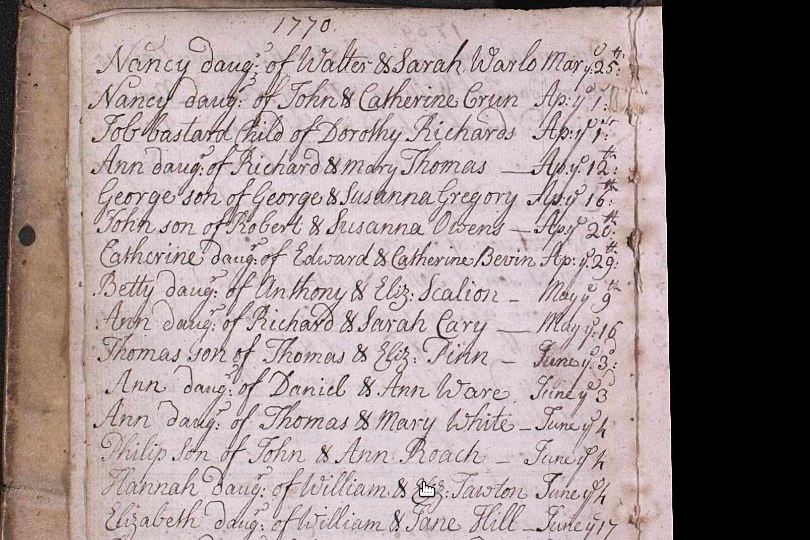 1770
Nancy daug:r of Walter & Sarah Warlo Mar y:e 25:th
Nancy daug:r of John & Catherine Crun Ap: y:e 1:
Job bastard Child of Dorothy Richards Ap: y:e 1:st
Ann daug:r of Richard & mary Thomas — Ap: y:e 12:th
George son of George & Susanna Gregory Ap: y:e 16:th
John son of Robert & Susanna Owens — Ap: y:e 20:th
Catherine daug:r of Edward & Catherine Bevin Ap: y:e 29:th
Betty daug:r of Anthony & Eliz: Scalion – May y:e 9th
Ann daug:r of Richard & Sarah Cary — May y:e 16
Thomas son of Thomas & Eliz: Pinn – June y:e 3:d
Ann daug:r of Daniel & Ann Ware June y:e 3d
Ann daug:r of Thomas & Mary White – June y:e 4
Philip son of John & Ann Roach – June y:e 4
Hannah daug:r of William & Eliz: Tawton June y:e 4
Elizabeth daug:r of William & Jane Hill – June y:e 17